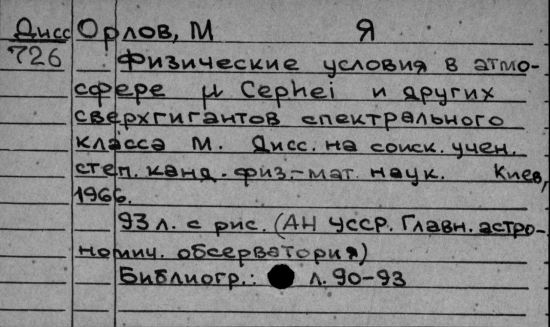 Дисс Орлов, М Я
726 Физические условия в атмо-
сфере μ Cephei и других
сверхгигантов спектрального
класса М. Дисс. на соиск. учен.
степ. канд. физ.-мат. наук. Киев,
1966.
93 л. с рис. (АН УССР. Главн. астро-
номич. обсерватория)
Библиогр.: л. 90-93